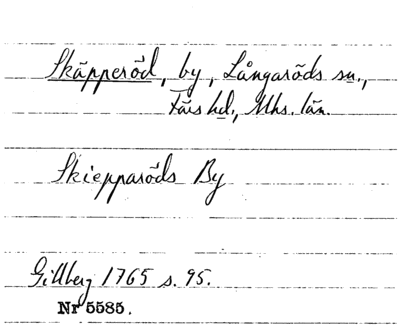 Skäpperöd, by, Långaröds sn.,
Färs hd, Mhs. län.
Skiepparöds By
Gillberg 1765 s. 95.
Nr 5585.